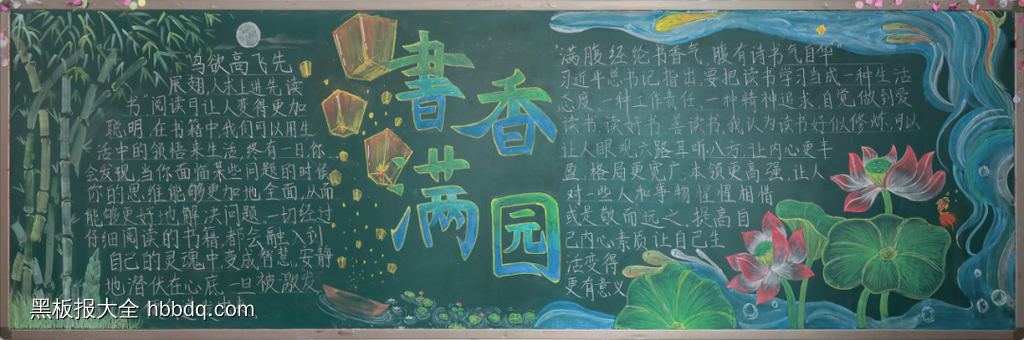 鸟欲高飞先
展翅,人求上进先读
书,阅读可让人变得更加
聪明,在书籍中我们可以用生
活中的领悟来生活,终有一日,你
会发现,当你面临某些问题的时候
你的思维能够更加地全面,从而
能够更好地解决问题,一切经过
仔细阅读的书籍,都会融入到
自己的灵魂中变成智慧,安静
地潜伏在心底,一旦被激发
書香
满园
"满腹经纶书香气,腹有诗书气自华"
习近平总书记指出要把读书学习当成一种生活
态度,一种工作责任,一种精神追求,自觉做到爱
读书,读好书,善读书,我认为读书好似修炼,可以
让人眼观六路耳听八方,让内心更丰
盈,格局更宽广,本领更高强,让人
对一些人和事物惺惺相惜
或是敬而远之,提高自
己内心素质,让自己生
活变得
更有意义
黑板报大全 hbbdq.com